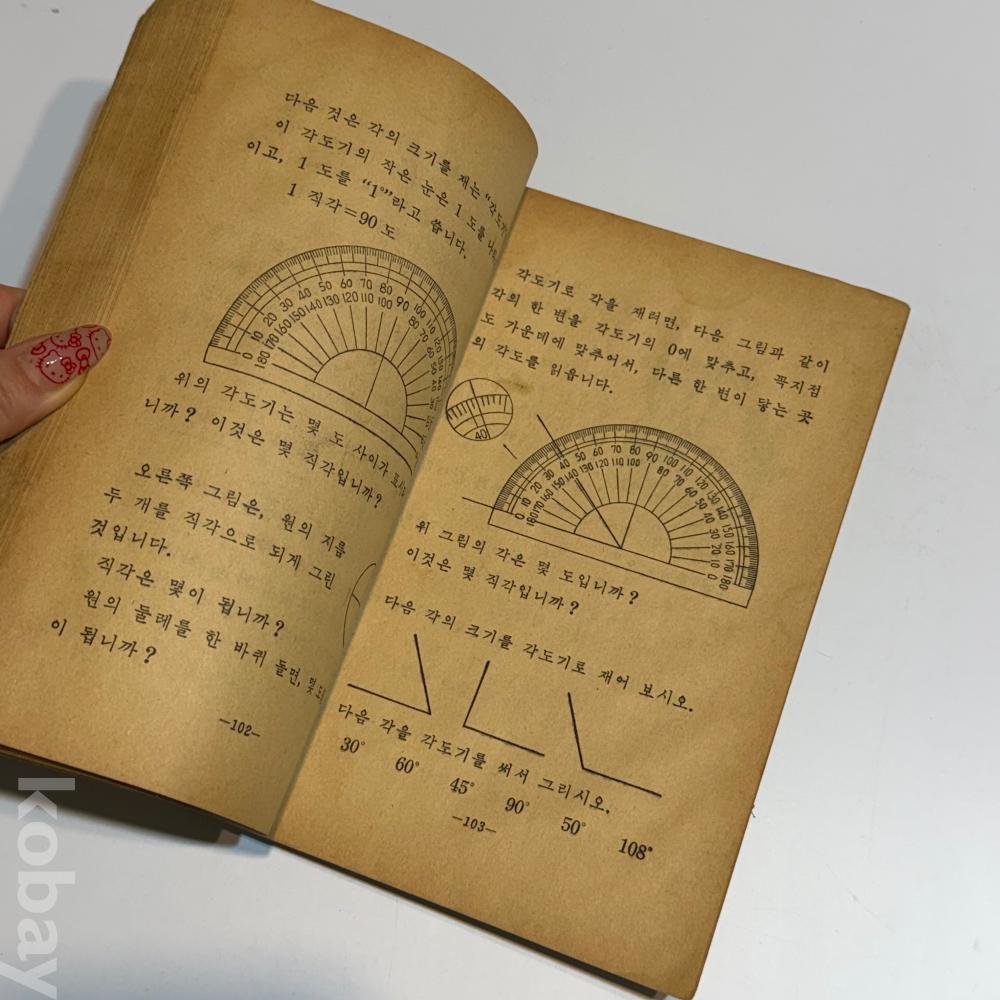 다음 것은 각의 크기를 재는 "각도기"
이 각도기의 작은 눈은 1 도를
이고, 1 도를 "1°"라고 씁니다.
1 직각=90 도
0 10 20 30 40 50 60 70 80 90 100 110 120 130
180 170 160 150 140 130 120 110 100 80 70 60 50 40
위의 각도기는 몇 도 사이가
니까? 이것은 몇 직각입니까?
오른쪽 그림은, 원의 지름
두 개를 직각으로 되게 그린
것입니다.
직각은 몇이 됩니까?
원의 둘레를 한 바퀴 돌면, 몇 도
이 됩니까?
—102—
각도기로 각을 재려면, 다음 그림과 같이
각의 한 변을 각도기의 0에 맞추고, 꼭지점
도 가운데에 맞추어서, 다른 한 변이 닿는 곳
의 각도를 읽읍니다.
40
0 10 20 30 40 50 60 70 80 90 100 110 120 130 140 150 160 170 180
180 170 160 150 140 130 120 110 100 80 70 60 50 40 30 20 10 0
위 그림의 각은 몇 도입니까?
이것은 몇 직각입니까?
다음 각의 크기를 각도기로 재어 보시오.
다음 각을 각도기를 써서 그리시오.
30° 60° 45° 90° 50° 108°
—103—
kobay